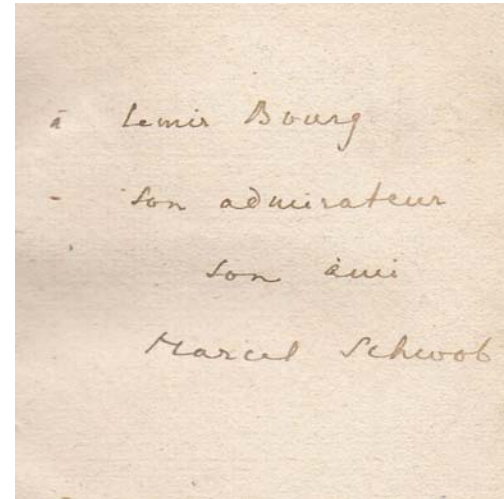 à Lemis Bourg
son admirateur
son ami
Marcel Schwob